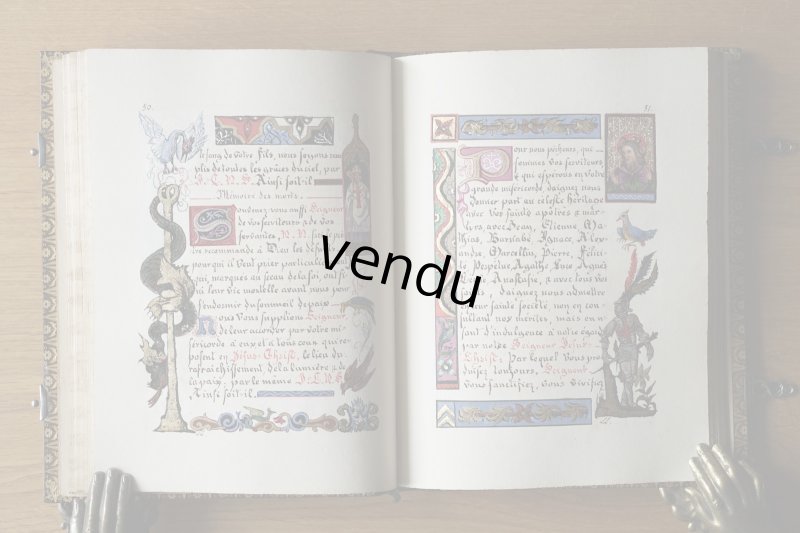 50.
le sang de votre Fils, nous soyons rem
plis de toutes les grâces du ciel, par
J. C. N. S. Ainsi soit-il
Mémoire des morts.
Souvenez vous aussi Seigneur
de vos serviteurs & de vos
servantes N.N.
recommande à Dieu les
pour qui il veut prier
qui marqués au sceau de la foi, ont fi
ni leur vie mortelle avant nous pour
s'endormir du sommeil de paix
Nous vous supplions Seigneur
de leur accorder par votre mi
séricorde à eux et à tous ceux qui re
posent en Jésus-Christ, le lieu du
rafraîchissement de la lumière & de
la paix, par le même J. C. N. S.
Ainsi soit-il.
51.
Pour nous pécheurs, qui
sommes vos serviteurs
& qui espérons en votre
grande miséricorde, daignez nous
donner part au céleste héritage
avec vos saints apôtres & mar
tyrs avec Jean, Etienne Ma
thias, Barnabé Ignace, Alex
andre, Marcellin, Pierre, Félici
té Perpétue, Agathe Luce Agnès
Anastasie, & avec tous vos
daignez nous admettre
leur sainte société, non en con
sultant nos mérites, mais en u
sant d'indulgence à notre égard
par notre Seigneur Jésus-
Christ, Par lequel vous pro
duisez toujours, Seigneur,
vous sanctifiez, vous vivifiez
vendu